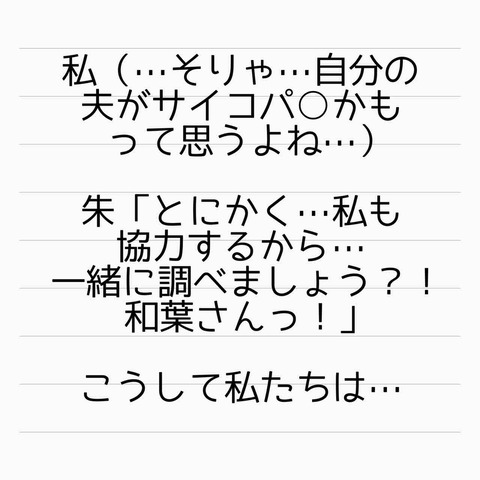 私（…そりゃ…自分の
夫がサイコパ○かも
って思うよね…）
朱「とにかく…私も
協力するから…
一緒に調べましょう？！
和葉さんっ！」
こうして私たちは…